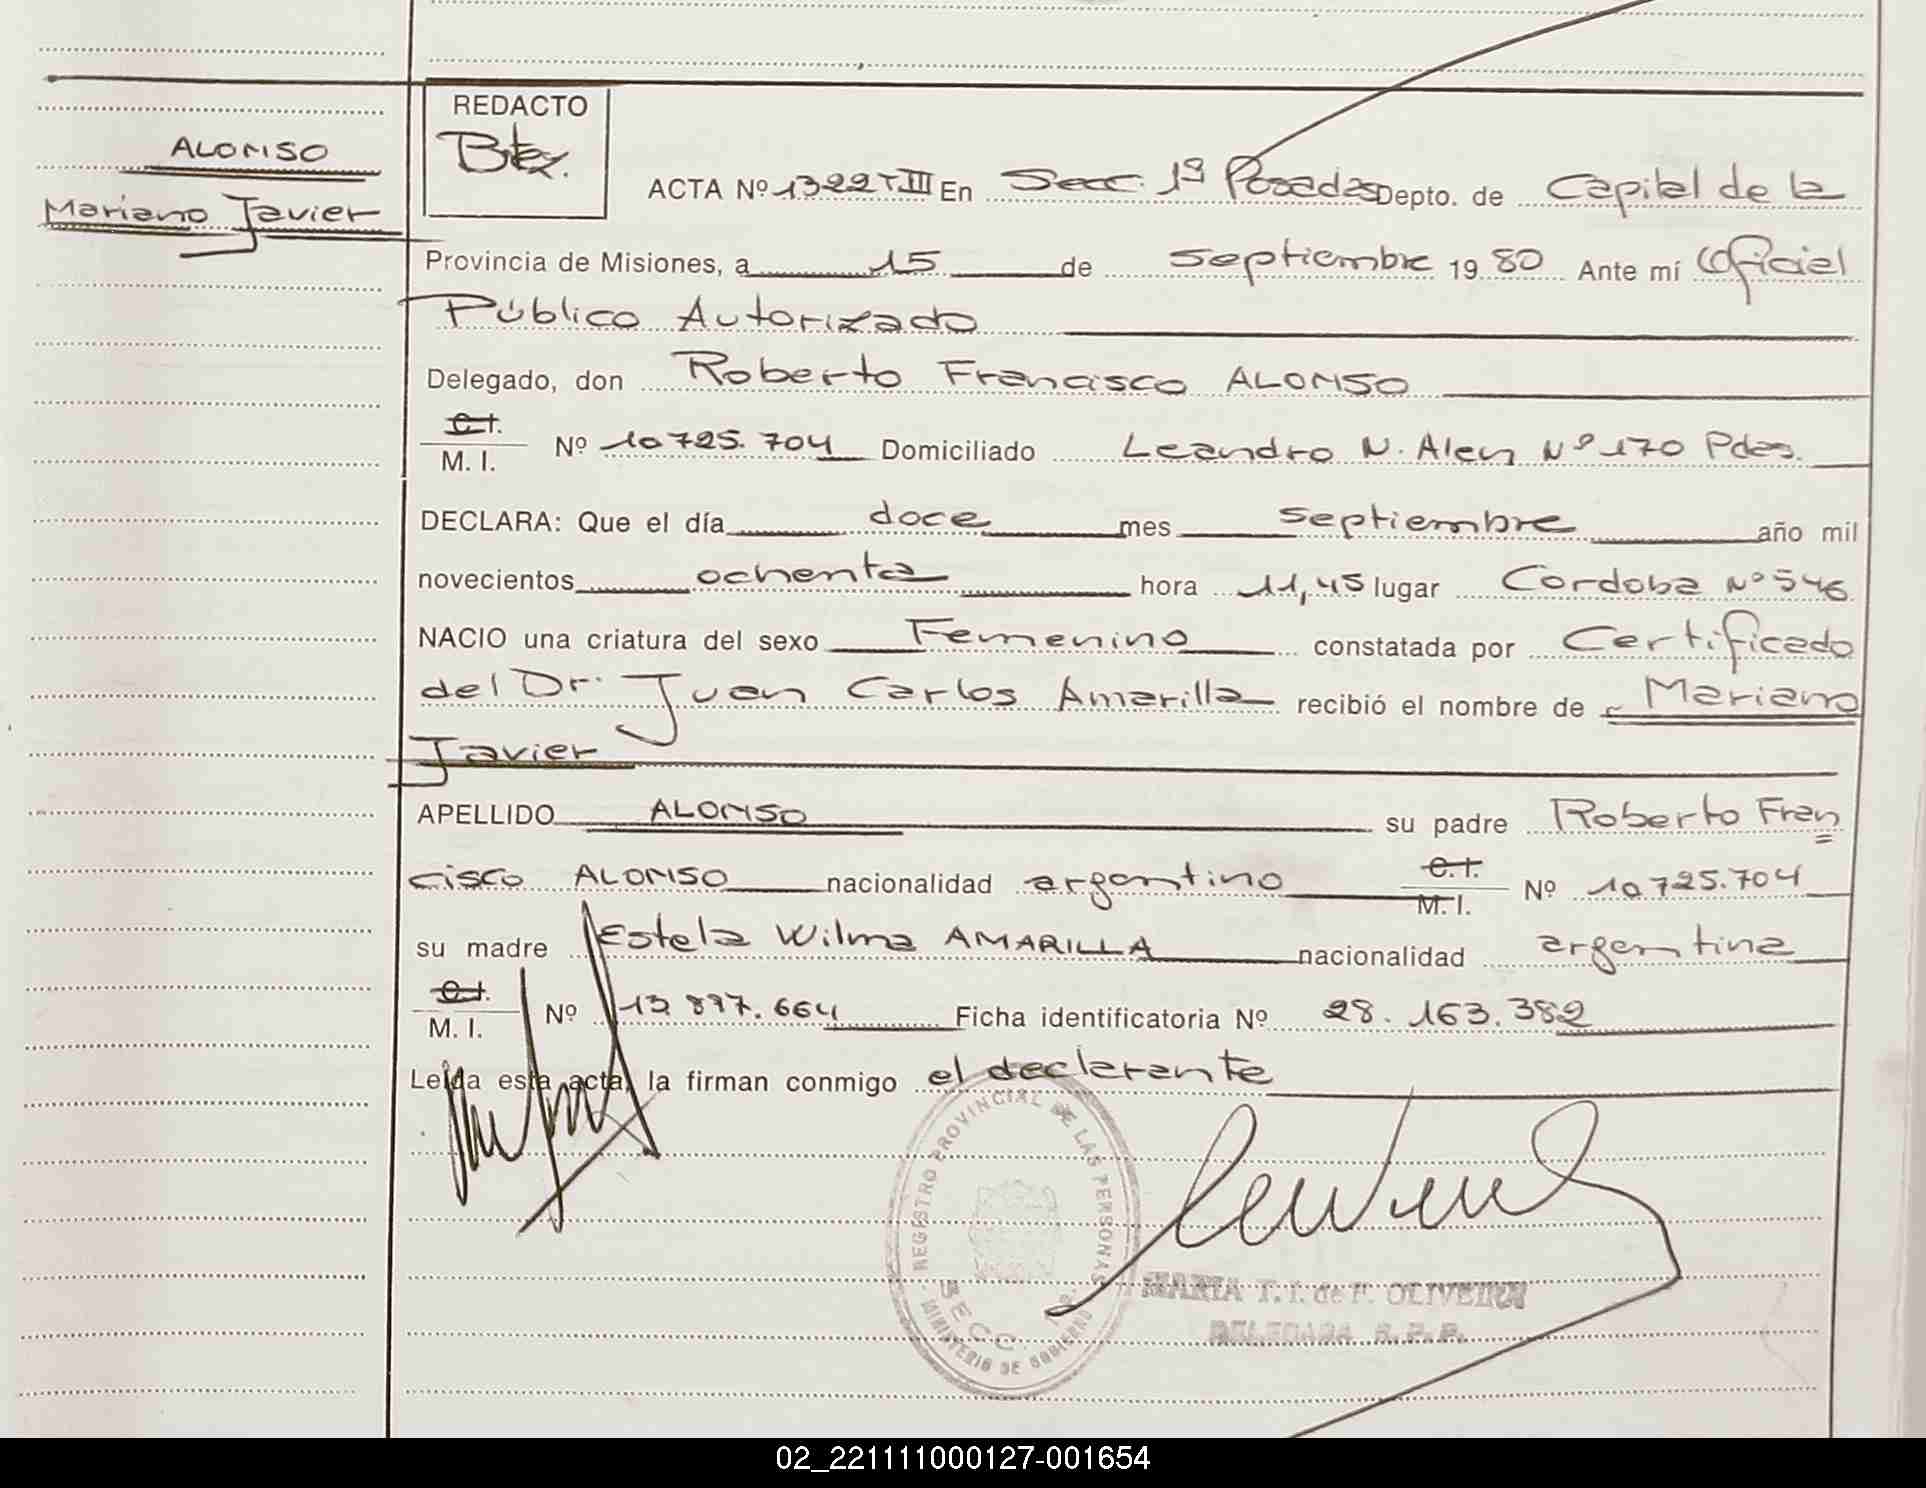 ALONSO
Mariano Javier
REDACTO
ACTA Nº 1322 T III En Secc. 1ª Posadas Depto. de Capital de la
Provincia de Misiones, a 15 de septiembre 19 80 Ante mí Oficial
Público Autorizado
Delegado, don Roberto Francisco ALONSO
C.I.
M. I. Nº 10.725.704 Domiciliado Leandro N. Alen Nº 170 Pdas.
DECLARA: Que el día doce mes septiembre año mil
novecientos ochenta hora 11,45 lugar Cordoba Nº 546
NACIO una criatura del sexo Femenino constatada por Certificado
del Dr. Juan Carlos Amarilla recibió el nombre de Mariano
Javier
APELLIDO ALONSO su padre Roberto Fran
cisco ALONSO nacionalidad argentino C.I. M. I. Nº 10.725.704
su madre Estela Wilma AMARILLA nacionalidad argentina
C.I.
M. I. Nº 13.897.664 Ficha identificatoria Nº 28.163.382
Leída esta acta, la firman conmigo el declarante
REGISTRO PROVINCIAL DE LAS PERSONAS
SECC. 1a.
MINISTERIO DE GOBIERNO
MARIA T. I. de F. OLIVEIRA
DELEGADA R. P. P.
02_221111000127-001654